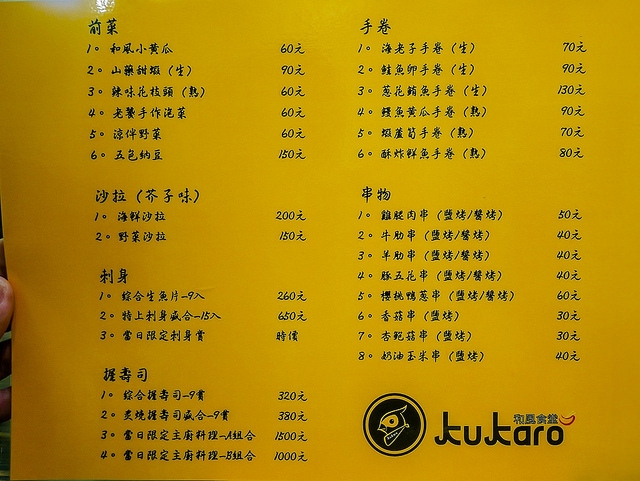 前菜
1。 和風小黃瓜 60元
2。 山藥甜蝦（生） 90元
3。 辣味花枝頭（熟） 60元
4。 老饕手作泡菜 60元
5。 涼伴野菜 60元
6。 五色納豆 150元
沙拉（芥子味）
1。 海鮮沙拉 200元
2。 野菜沙拉 150元
刺身
1。 綜合生魚片-9入 260元
2。 特上刺身盛合-15入 650元
3。 當日限定刺身賞 時價
握壽司
1。 綜合握壽司-9賞 320元
2。 炙燒握壽司盛合-9賞 380元
3。 當日限定主廚料理-A組合 1500元
4。 當日限定主廚料理-B組合 1000元
手卷
1。 海老子手卷（生） 70元
2。 鮭魚卵手卷（生） 90元
3。 蔥花鮪魚手卷（生） 130元
4。 鰻魚黃瓜手卷（熟） 90元
5。 蝦蘆筍手卷（熟） 70元
6。 酥炸鮮魚手卷（熟） 80元
串物
1。 雞腿肉串（鹽烤/醬烤） 50元
2。 牛肋串（鹽烤/醬烤） 40元
3。 羊肋串（鹽烤/醬烤） 40元
4。 豚五花串（鹽烤/醬烤） 40元
5。 櫻桃鴨蔥串（鹽烤/醬烤） 60元
6。 香菇串（鹽烤） 30元
7。 杏鮑菇串（鹽烤） 30元
8。 奶油玉米串（鹽烤） 40元
和風食堂
kukaro